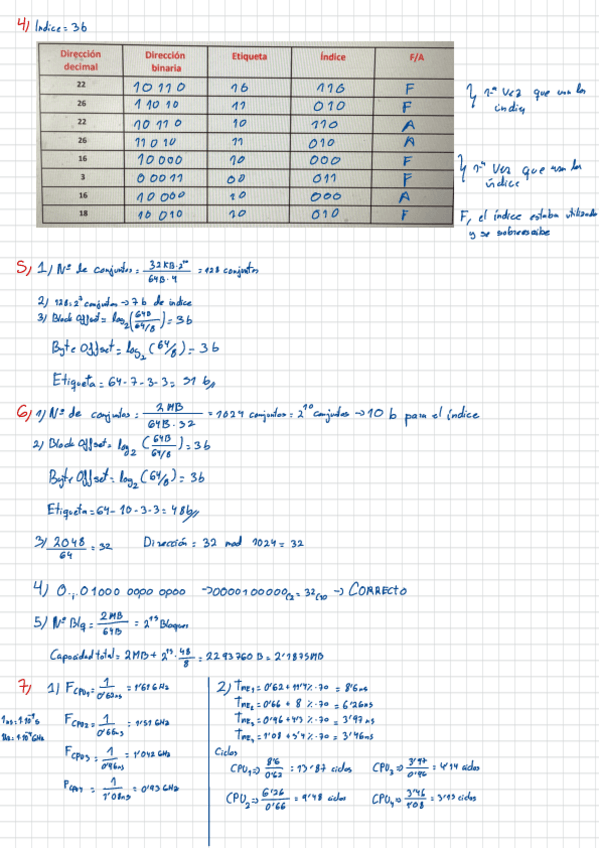 4) Indice = 3b
Dirección decimal Dirección binaria Etiqueta Índice F/A
22 10110 10 110 F
26 11010 11 010 F
22 10110 10 110 A
26 11010 11 010 A
16 10000 10 000 F
3 00011 00 011 F
16 10000 10 000 A
18 10010 10 010 F
1ª vez que usa los
1ª vez que usa los
índice
F, el índice estaba utilizado
y se sobreescribe
5) 1) Nº de conjuntos = 32KB·2¹⁰ / 64B·4 = 128 conjuntos
2) 128 = 2⁷ conjuntos → 7 b de indice
3) Block Offset = log₂(64B / 64/8) = 3b
Byte Offset = log₂(64/8) = 3b
Etiqueta = 64-7-3-3 = 51 b//
6) 1) Nº de conjuntos = 2MB / 64B·32 = 1024 conjuntos = 2¹⁰ conjuntos → 10 b para el índice
2) Block Offset = log₂(64B / 64/8) = 3b
Byte Offset = log₂(64/8) = 3b
Etiqueta = 64-10-3-3 = 48b//
3) 2048 / 64 = 32 Dirección = 32 mod 1024 = 32
4) 0...01000 0000 0000 → 0000100000₍₂ = 32₍₁₀ → CORRECTO
5) Nº Blq = 2MB / 64B = 2¹⁵ Bloques
Capacidad total = 2MB + 2¹⁵ · 48/8 = 2293760 B = 2'1875MB
7) 1) F CPU₁ = 1 / 0'62ns = 1'61 GHz
F CPU2 = 1 / 0'66ns = 1'51 GHz
F CPU3 = 1 / 0'96ns = 1'042 GHz
F CPU4 = 1 / 1'08ns = 0'93 GHz
2) TME₁ = 0'62 + 11'4% · 70 = 8'6ns
TME₂ = 0'66 + 8% · 70 = 6'26ns
TME₃ = 0'96 + 4'3% · 70 = 3'97ns
TME₄ = 1'08 + 3'4% · 70 = 3'46ns
Ciclos
CPU₁ ⇒ 8'6 / 0'62 = 13'87 ciclos CPU₃ ⇒ 3'97 / 0'96 = 4'14 ciclos
CPU₂ ⇒ 6'26 / 0'66 = 9'48 ciclos CPU₄ ⇒ 3'46 / 1'08 = 3'93 ciclos